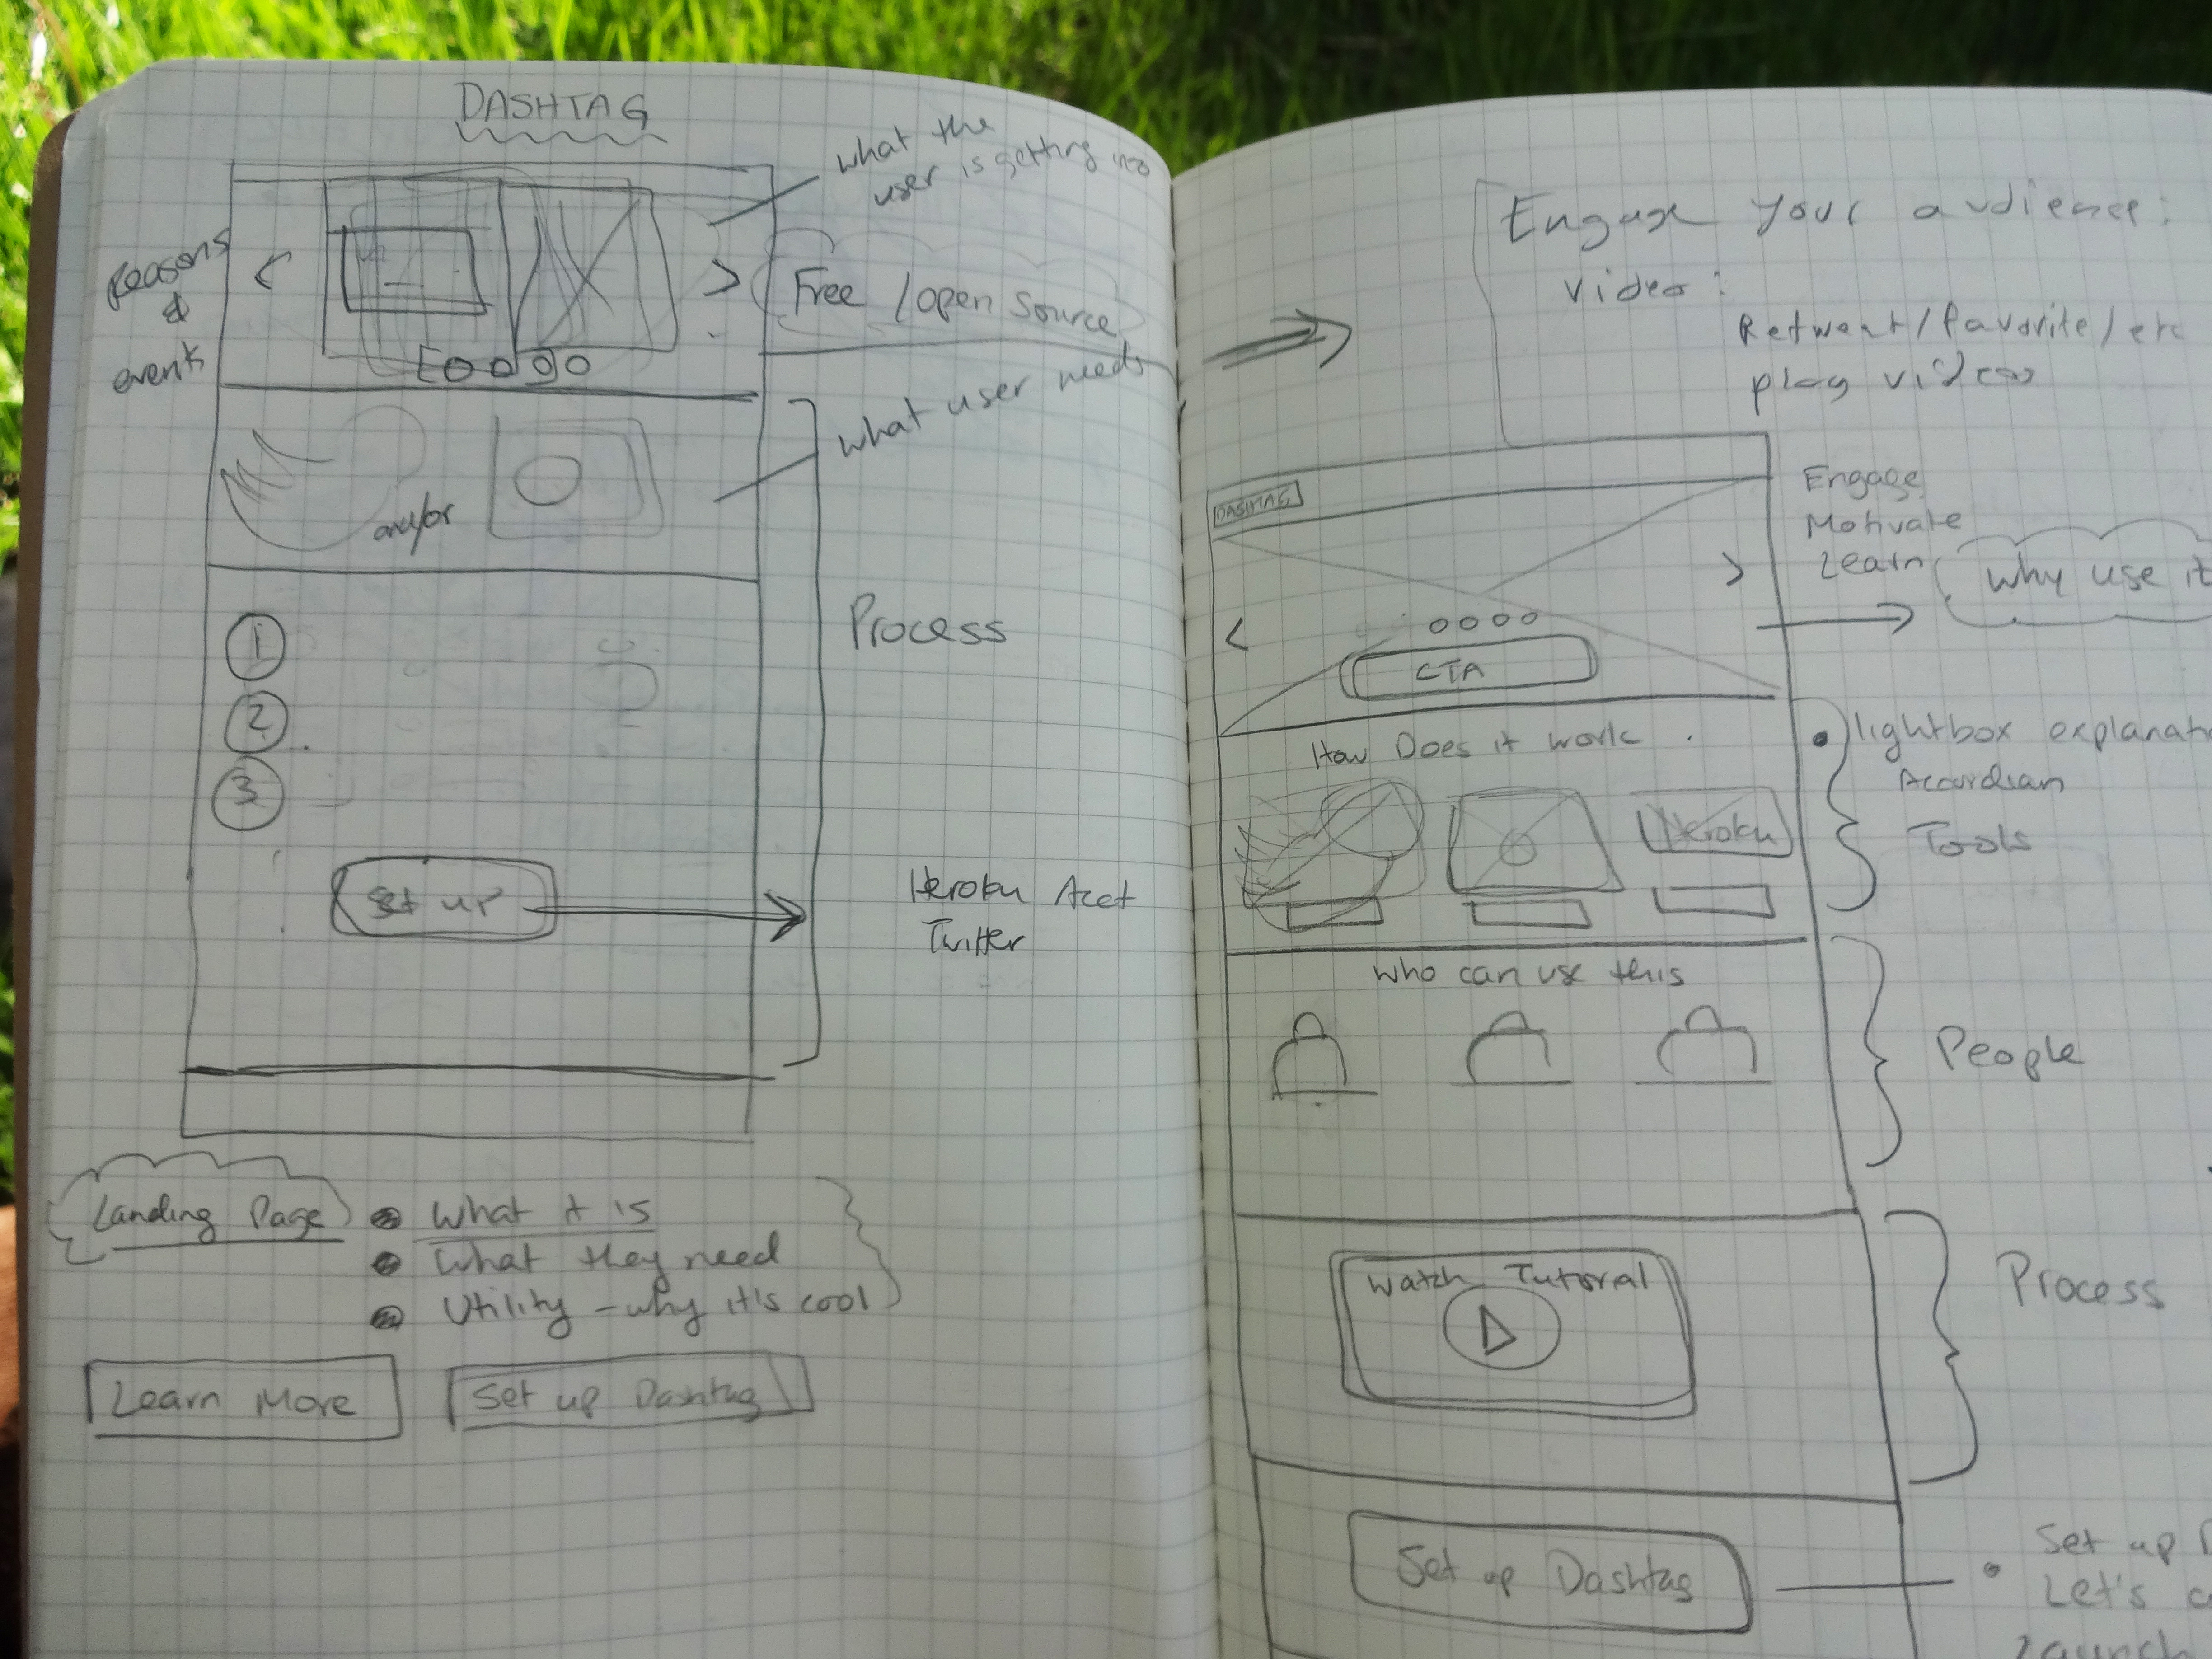 DASHTAG
what the
user is getting into
Reasons
&
events
<
>
Free / open source
what user needs
and/or
Process
1
2
3
Set up
Heroku Acct
Twitter
Landing Page
What it is
What they need
Utility - why it's cool
Learn More
Set up Dashtag
Engage your audience:
video:
Retweet/favorite/etc
play videos
DASHTAG
Engage
Motivate
Learn
Why use it
<
>
CTA
How Does it work
Heroku
lightbox explanati
Accordian
Tools
Who can use this
People
Watch Tutorial
Process
Set up Dashtag
Set up D
Let's
Launch